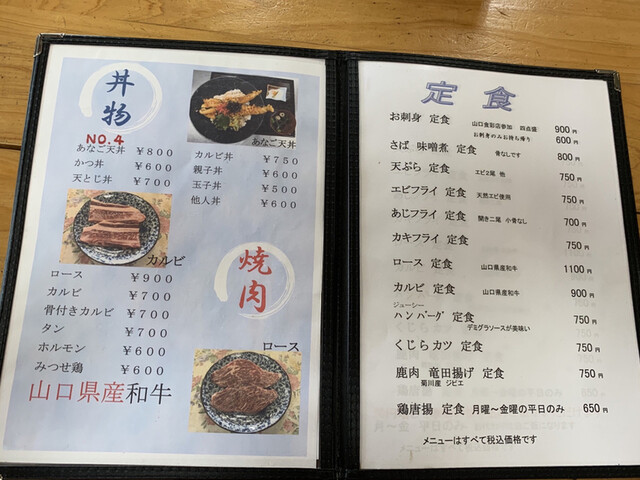 丼物
NO.4
あなご天丼 ￥800
かつ丼 ￥600
天とじ丼 ￥700
あなご天丼
カルビ丼 ￥750
親子丼 ￥600
玉子丼 ￥500
他人丼 ￥600
カルビ
焼肉
ロース ￥900
カルビ ￥700
骨付きカルビ ￥700
タン ￥700
ホルモン ￥600
みつせ鶏 ￥600
ロース
山口県産和牛
定食
お刺身 定食 山口食彩店参加 四点盛 900円
お刺身のみお持ち帰り 600円
さば 味噌煮 定食 骨なしです 800円
天ぷら 定食 エビ2尾 他 750円
エビフライ 定食 天然エビ使用 750円
あじフライ 定食 開き二尾 小骨なし 700円
カキフライ 定食 750円
ロース 定食 山口県産和牛 1100円
カルビ 定食 山口県産和牛 900円
ジューシー
ハンバーグ 定食 750円
デミグラソースが美味い
くじらカツ 定食 750円
鹿肉 竜田揚げ 定食 750円
菊川産 ジビエ
鶏唐揚 定食 月曜～金曜の平日のみ 650円
メニューはすべて税込価格です